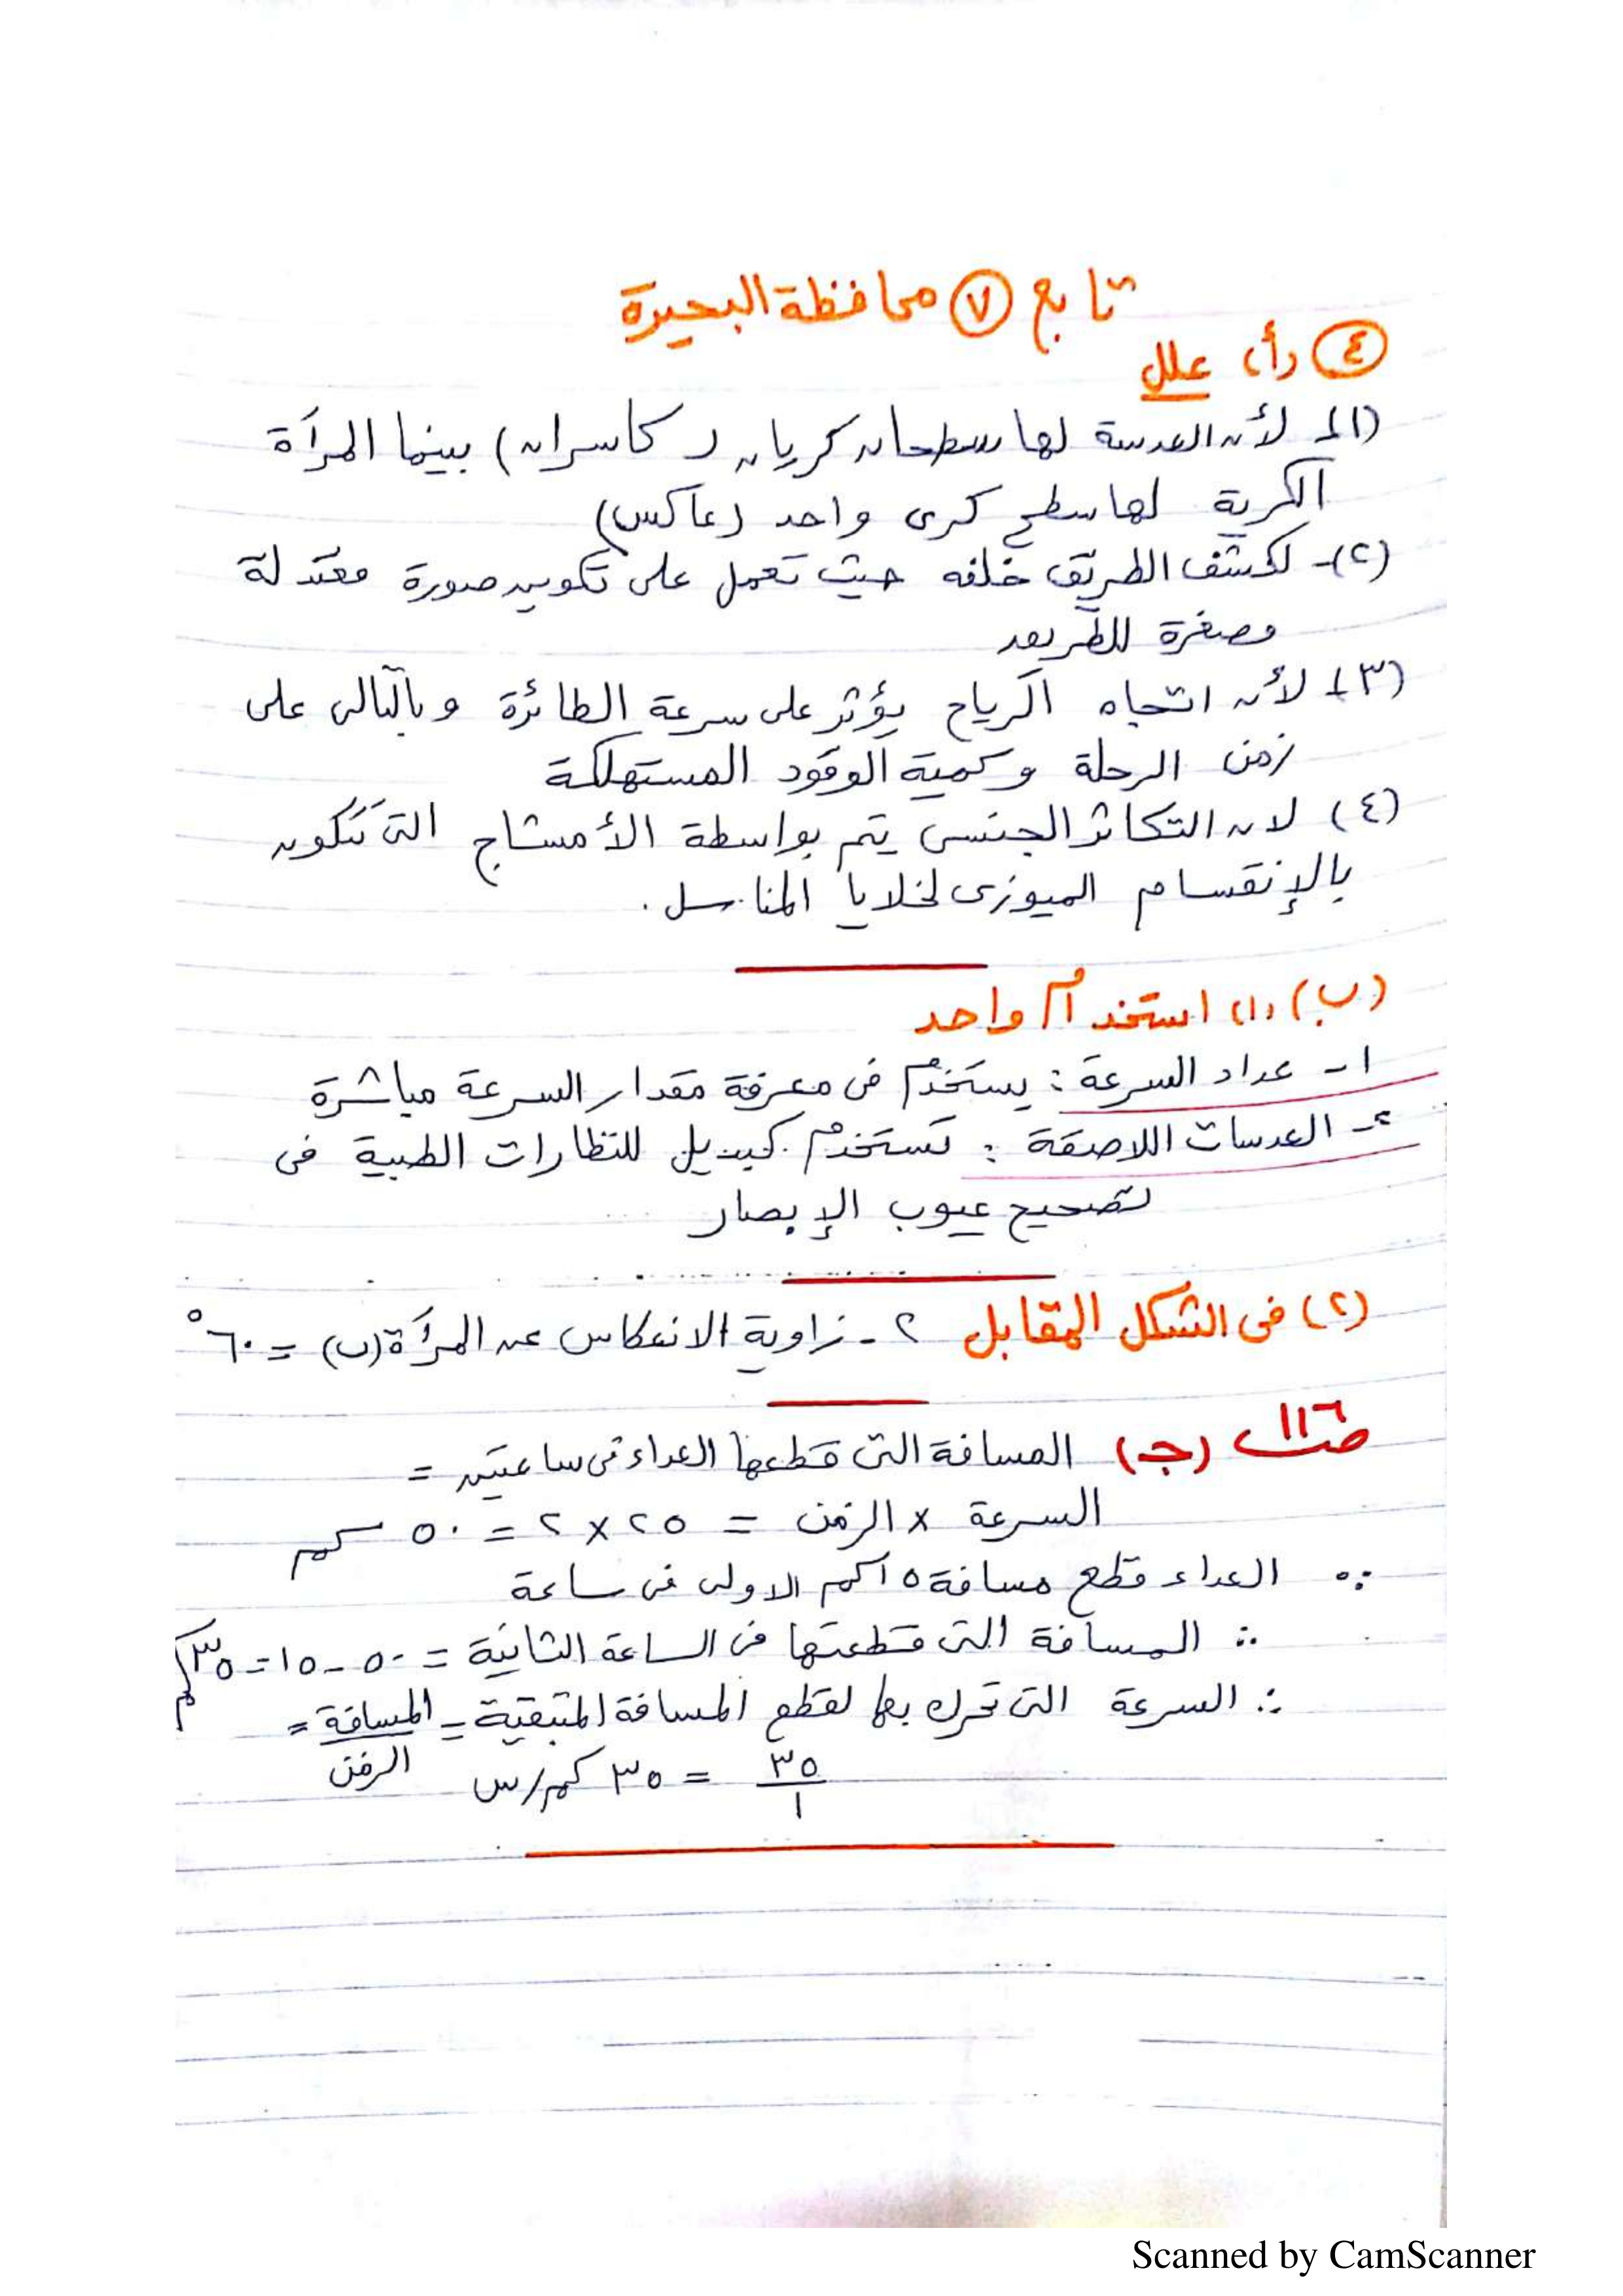 تابع ٧ محافظة البحيرة
٤ (أ) علل
(١) لأن العدسة لها سطحان كريان (كاسران) بينما المرآة
الكرية لها سطح كرى واحد (عاكس)
(٢)- لكشف الطريق خلفه حيث تعمل على تكوين صورة معتدلة
مصغرة للطريق
(٣) لأن اتجاه الرياح يؤثر على سرعة الطائرة وبالتالى على
زمن الرحلة وكمية الوقود المستهلكة
(٤) لان التكاثر الجنسى يتم بواسطة الأمشاج التى تتكون
بالإنقسام الميوزى لخلايا المناسل.
(ب) (١) استخدام واحد
١- عداد السرعة : يستخدم فى معرفة مقدار السرعة مباشرة
٢- العدسات اللاصقة : تستخدم كبديل للنظارات الطبية فى
تصحيح عيوب الإبصار
(٢) فى الشكل المقابل ٢- زاوية الانعكاس عن المرآة (ب) = ٦٠°
ص١١٦ (جـ) المسافة التى قطعها العداء فى ساعتين =
السرعة × الزمن = ٢٥ × ٢ = ٥٠ كم
∵ العداء قطع مسافة ١٥كم الاولى فى ساعة
∴ المسافة التى قطعتها فى الساعة الثانية = ٥٠ - ١٥ = ٣٥ كم
∴ السرعة التى تحرك بها لقطع المسافة المتبقية = المسافة =
الزمن
٣٥ = ٣٥ كم/س
١
Scanned by CamScanner